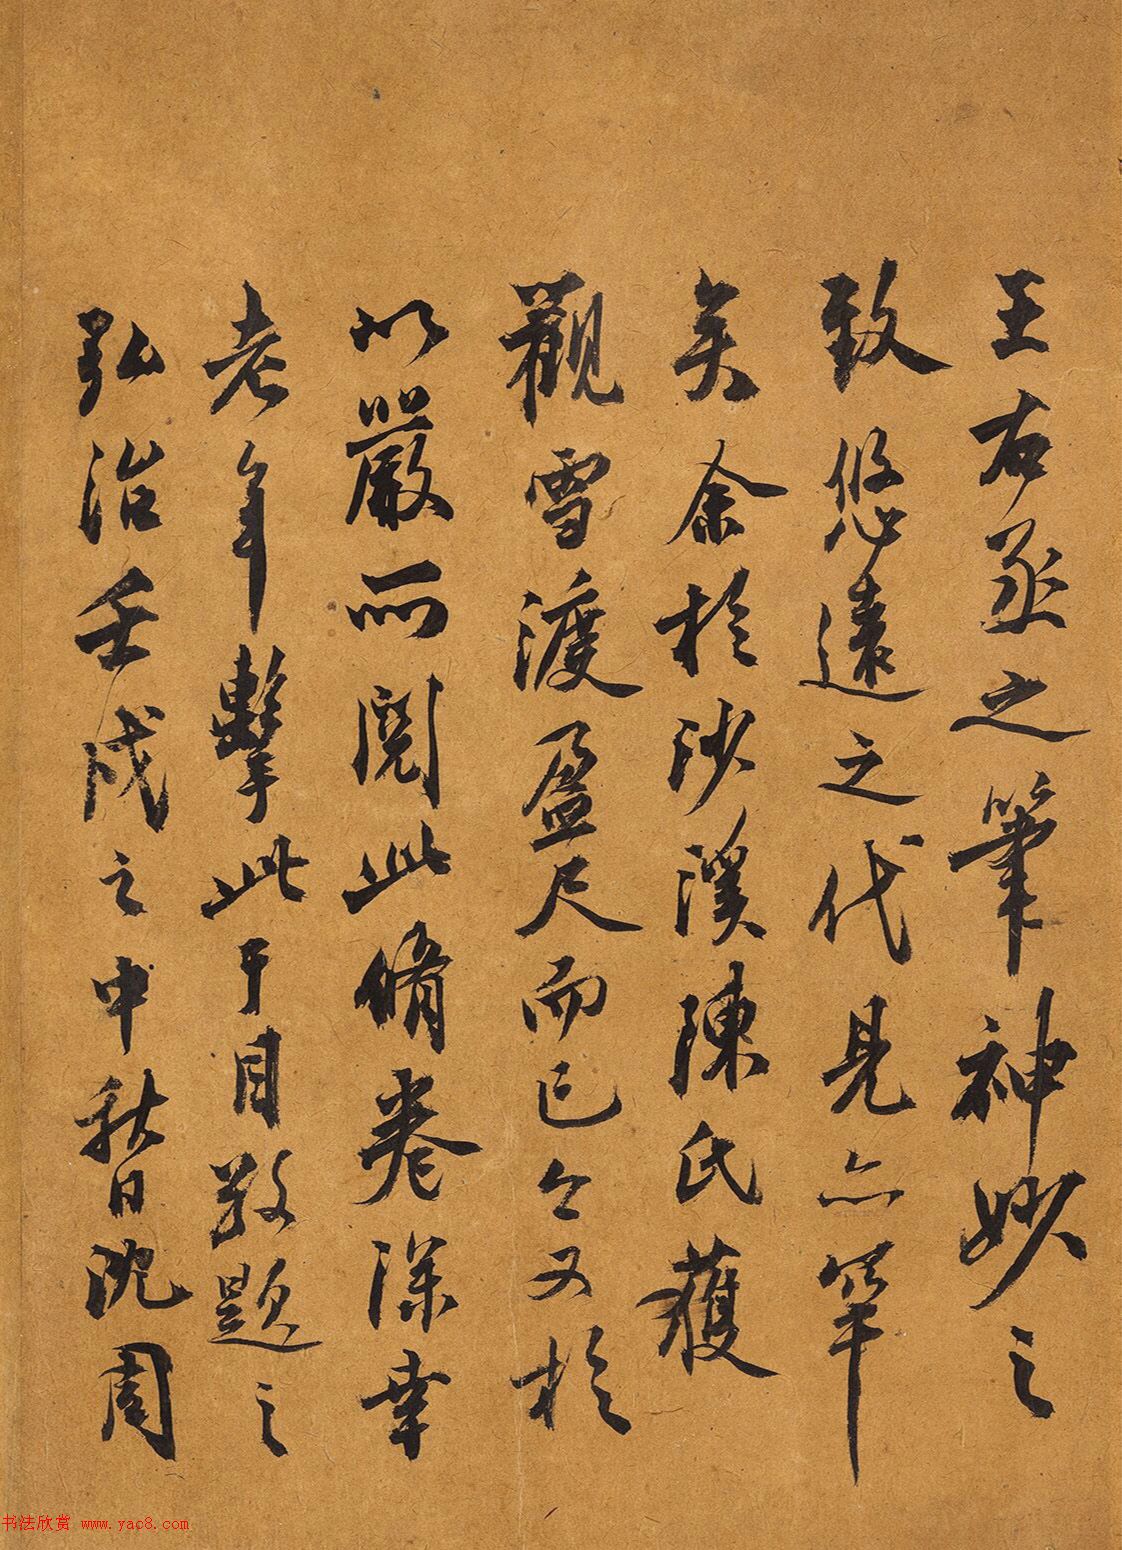 王右丞之筆神妙之
致悠遠之代見亦罕
矣余於沙溪陳氏獲
觀雪渡盈尺而已今又於
以嚴所閱此脩卷深幸
老年擊此于目敬題之
弘治壬戌之中秋日沈周
书法欣赏 www.yac8.com